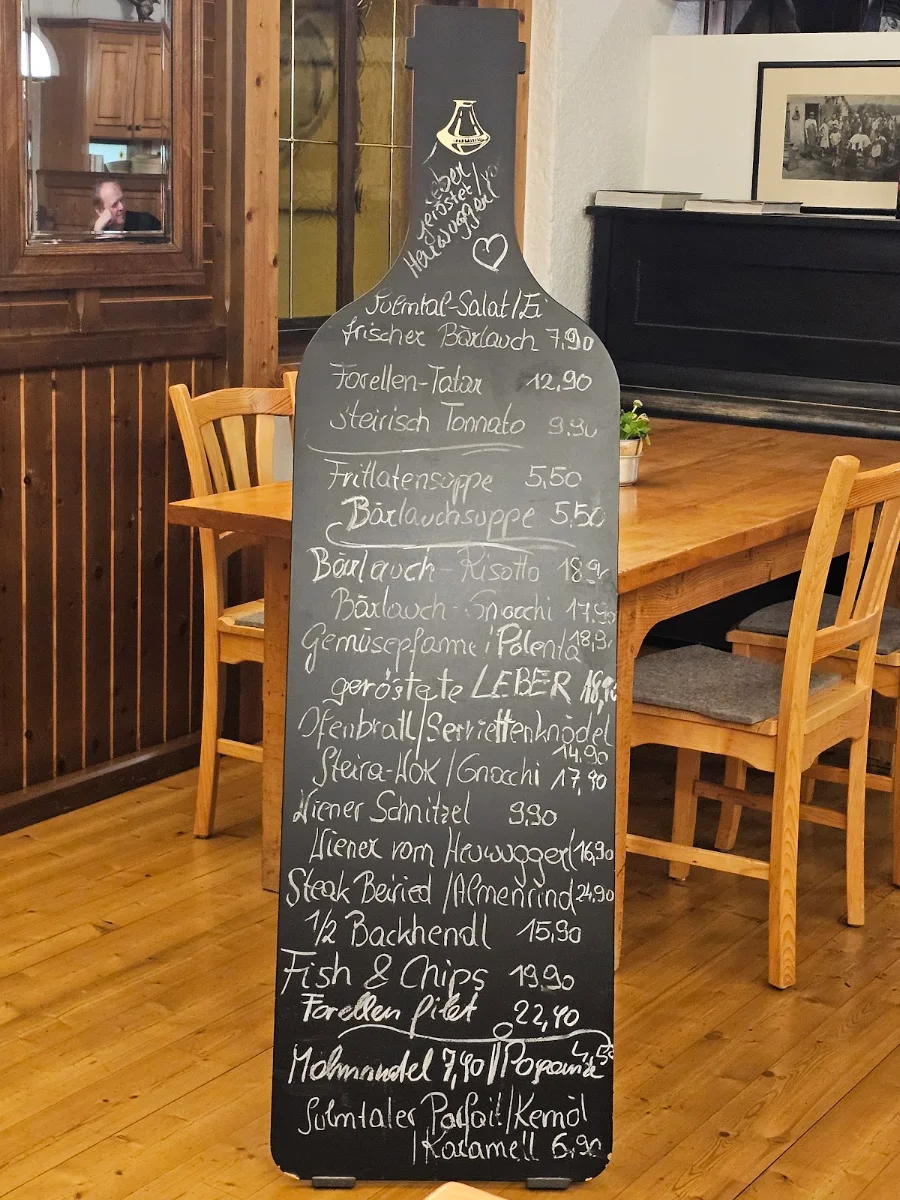 Leber
geröstet/
Heuwugger
Sulmtal-Salat/Ei
frischer Bärlauch 7,90
Forellen-Tatar 12,90
steirisch Tonnato 9.90
Fritlatensuppe 5,50
Bärlauchsuppe 5,50
Bärlauch-Risotto 18.90
Bärlauch-Gnocchi 17.90
Gemüsepfanne/Polenta 18,90
geröstete LEBER 18,90
Ofenbratl/Serviettenknödel
14,90
Steira-Wok/Gnocchi 17,90
Wiener Schnitzel 9,90
Wiener vom Heuwuggerl 16,90
Steak Beiried/Almenrind 24,90
1/2 Backhendl 15,90
Fish & Chips 19,90
Forellen filet 22,90
Mohnnudel 7,90
4,50
Sulmtaler Parfait/Kernöl
/Karamell 6,90